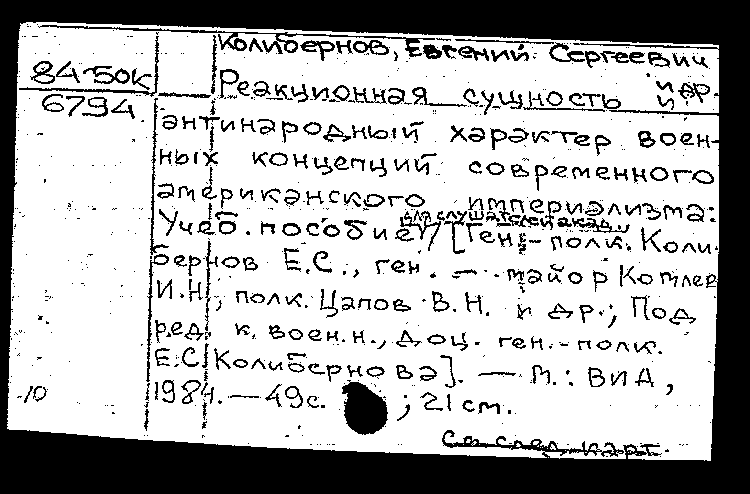 Колибернов, Евгений Сергеевич
и др.
84-50к
Реакционная сущность и
6794
антинародный характер воен-
ных концепций современного
американского империализма:
для слушателей акад.
Учеб. пособие / [Ген.-полк. Коли-
бернов Е.С., ген. - майор Котлев
И.Н., полк. Цапов В.Н. и др.; Под
ред. к. воен. н., доц. ген.-полк.
Е.С. Колибернова]. — М.: ВИА,
1984. — 49с. ; 21 см.
10
См след. карт.